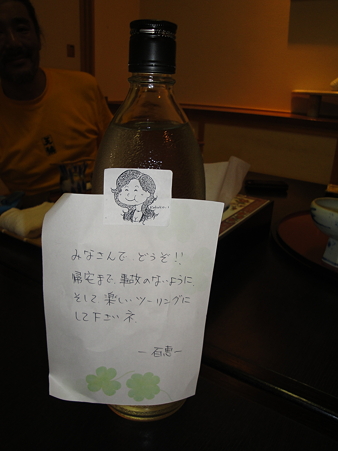 みなさんで どうぞ!!
帰宅まで、事故のないように
そして 楽しいツーリングに
して下さいネ
ー百恵ー